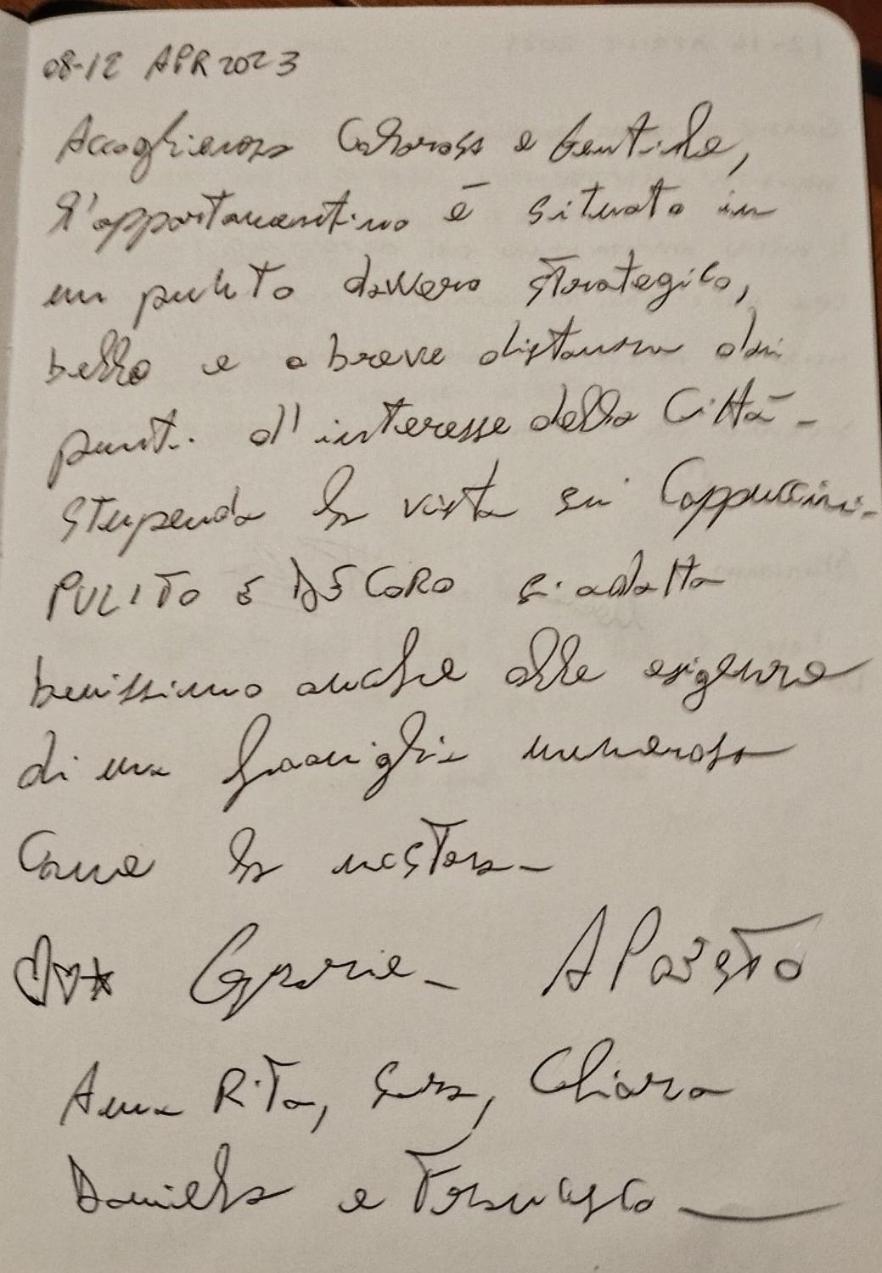 08-12 APR 2023
Accoglienza Calorosa e Gentile,
l'appartamentino è situato in
un punto davvero strategico,
bello e a breve distanza dai
punti d'interesse della Città -
Stupenda la vista sui Cappuccini.
PULITO E DECORO si adatta
benissimo anche alle esigenze
di una famiglia numerosa
come la nostra -
Grazie - A PRESTO
Anna Rita, Sara, Chiara
Daniela e Francesco